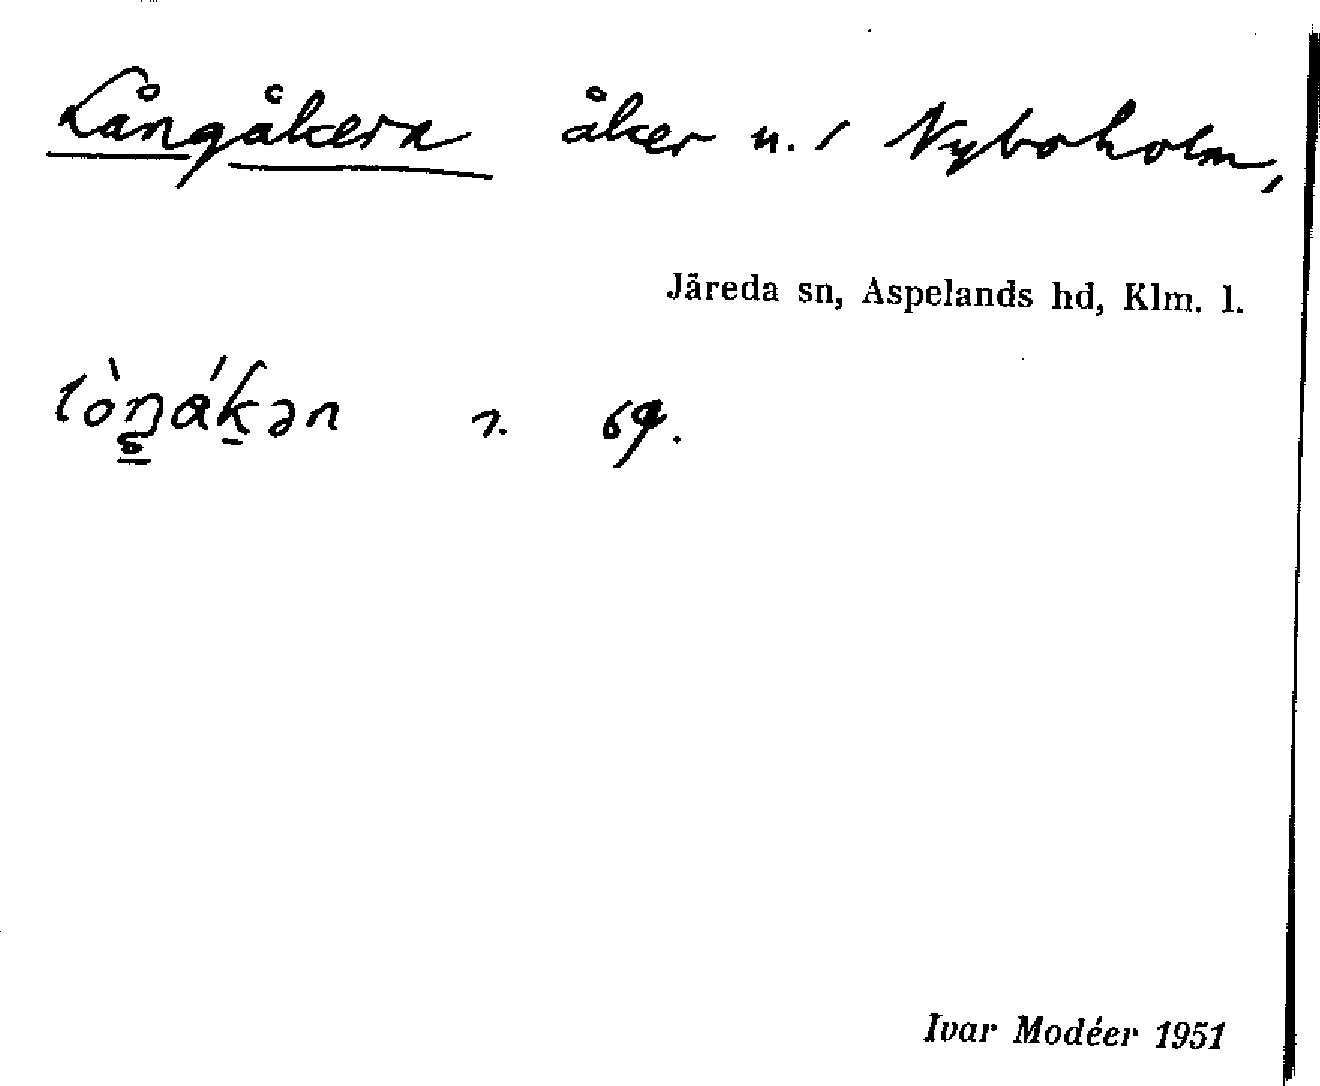 Långåkern åker u. / Nyboholm,
Järeda sn, Aspelands hd, Klm. l.
Ivar Modéer 1951